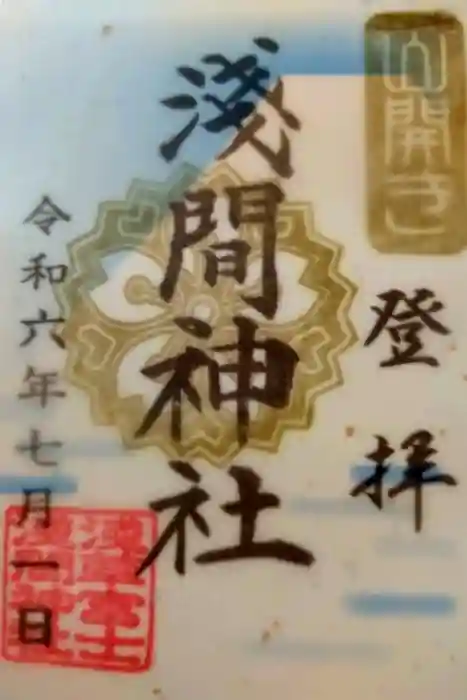 山開き
登拝
淺間神社
令和六年七月一日